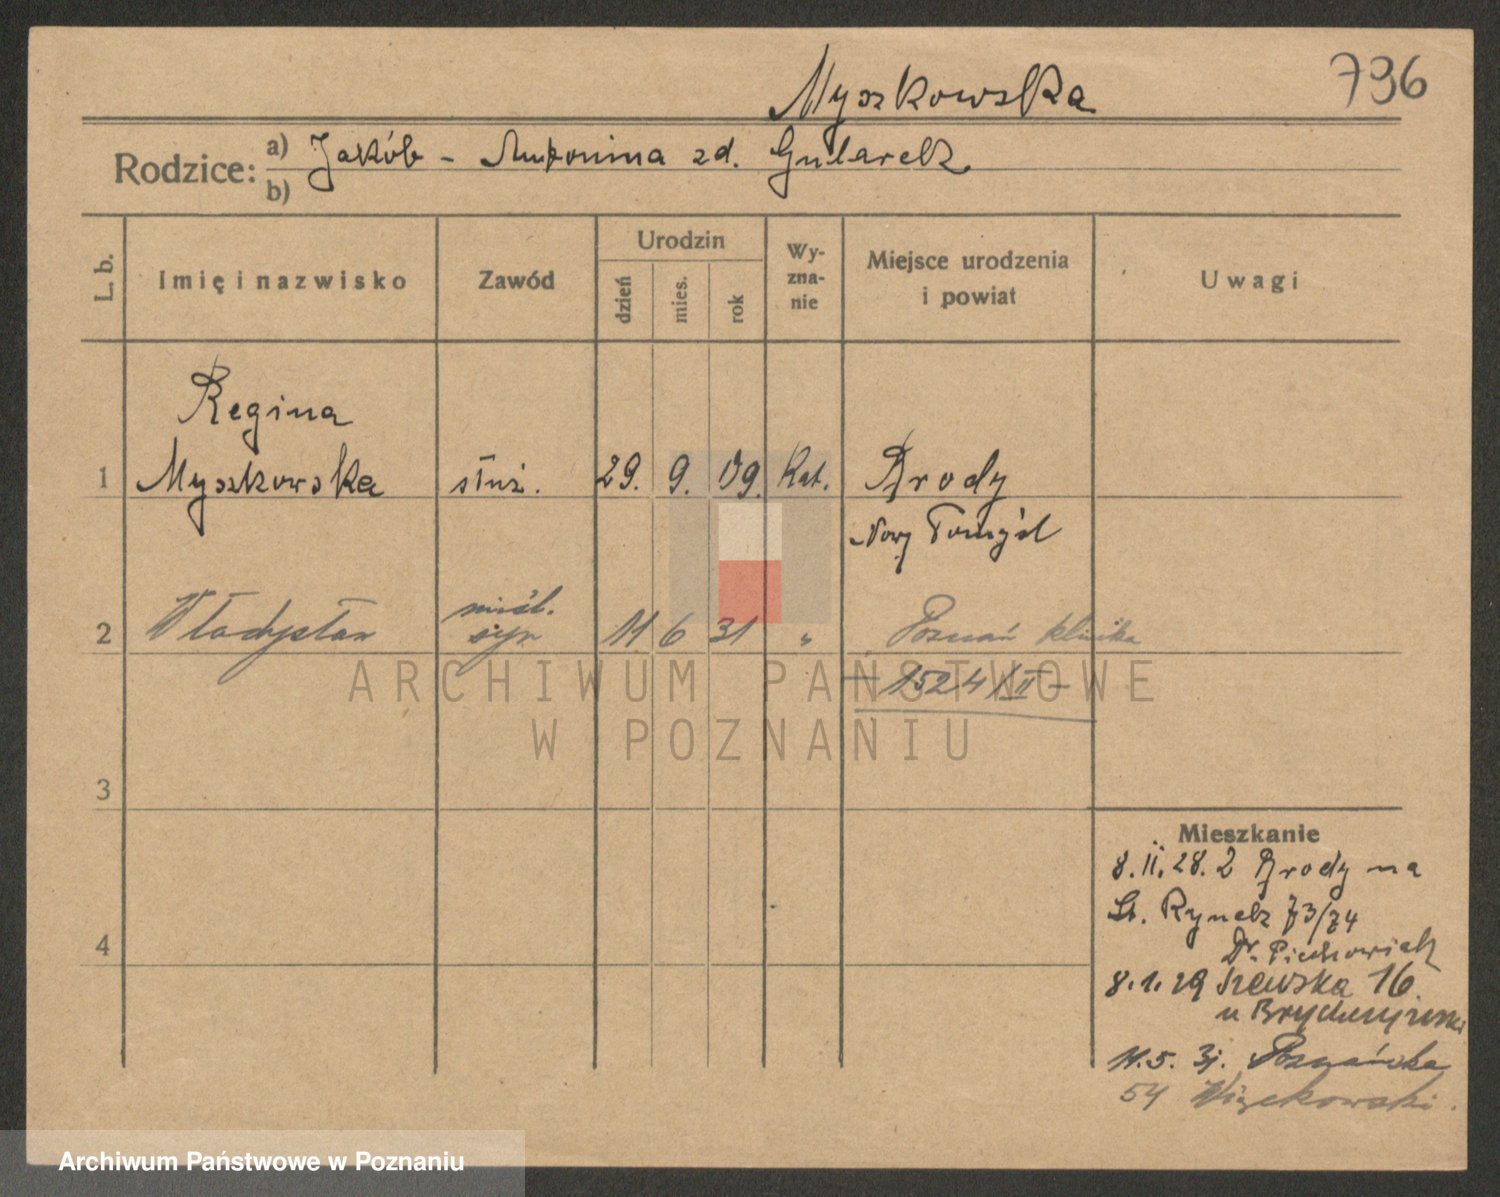 796
Myszkowska
Rodzice: a) Jakób - Antonina zd. Gularek
b)
L. b. Imię i nazwisko Zawód Urodzin dzień mies. rok Wy-zna-nie Miejsce urodzenia i powiat Uwagi
Regina
1 Myszkowska służ. 29. 9. 09. Kat. Brody
Nowy Tomyśl
nieśl.
2 Władysław syn 11 6 31 " Poznań klinika
1524/II
ARCHIWUM PAŃSTWOWE
W POZNANIU
3
Mieszkanie
8.II.28. z Brody na
St. Rynek 73/74
4
Dr. Piechowiak
8.1.29 Szewska 16
u
11.5.31. Poznańska
54 Więckowski.
Archiwum Państwowe w Poznaniu